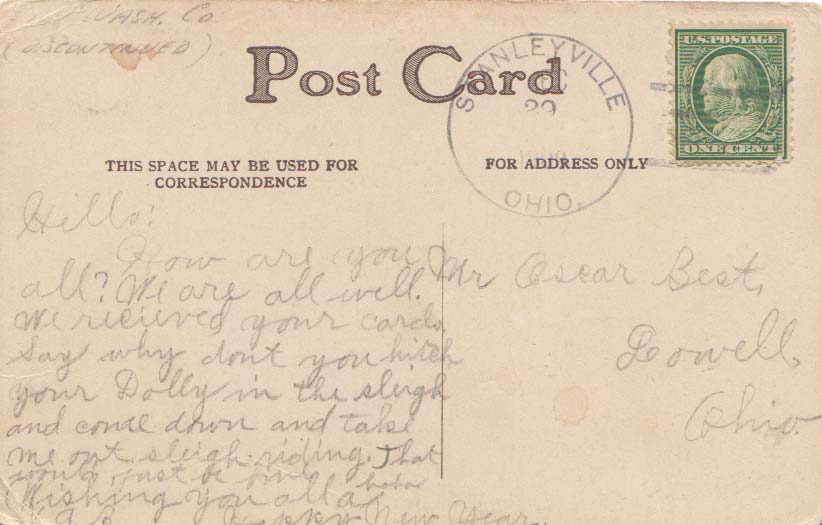 Wash. Co.
(DISCONTINUED)
Post Card
STANLEYVILLE
29
OHIO.
U.S. POSTAGE
ONE CENT
THIS SPACE MAY BE USED FOR
CORRESPONDENCE
FOR ADDRESS ONLY
Hello!
How are you
all? We are all well.
We recieved your cards.
Say why don't you hitch
your Dolly in the sleigh
and come down and take
me out sleigh-riding. That
would just be fine haha
Wishing you all a
Happy New Year.
Mr Oscar Best,
Lowell,
Ohio.